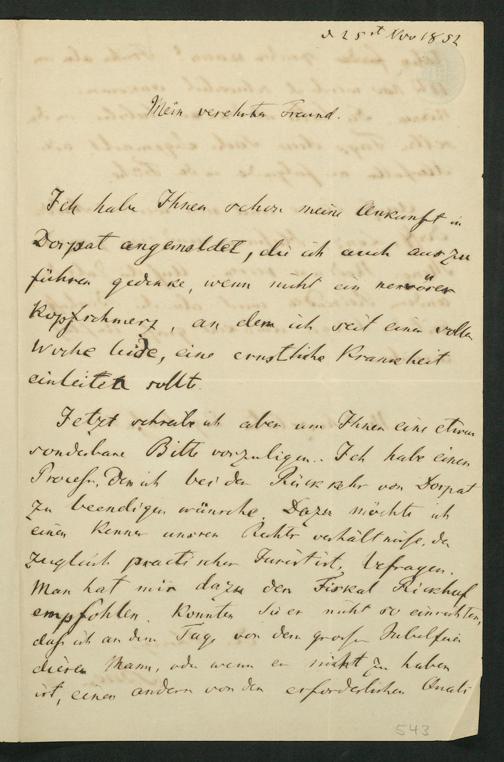 d 25st Nov 1852
Mein verehrter Freund.
Ich habe Ihnen schon meine Ankunft in
Dorpat angemeldet, die ich auch auszu
führen gedenke, wenn nicht ein nervöser
Kopfschmerz, an dem ich seit einer vollen
Woche leide, eine ernstliche Krankheit
einleiten sollte.
Jetzt schreibe ich aber um Ihnen eine etwas
sonderbare Bitte vorzulegen. Ich habe einen
Process, den ich bei der Rückkehr von Dorpat
zu beendigen wünsche. Dazu möchte ich
einen Kenner unserer Rechtsverhältnisse, der
zugleich practischer Jurist ist, befragen.
Man hat mir dazu den Fiskal Rückhuf
empfohlen. Könnten Sie es nicht so einrichten,
daß ich an dem Tage vor dem großen Jubelfeier
diesen Mann, oder wenn er nicht zu haben
ist, einen andern von den erforderlichen Quali
543